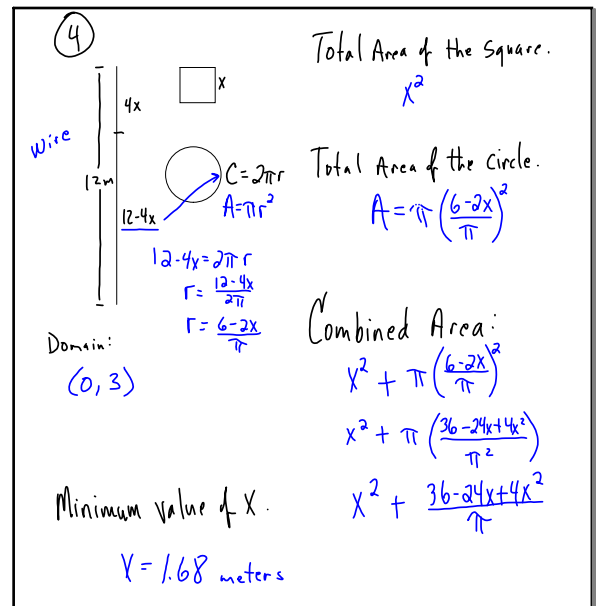 4
4x
x
wire
12m
C=2πr
A=πr²
12-4x
12-4x=2πr
r= (12-4x)/(2π)
r= (6-2x)/π
Domain:
(0,3)
Minimum value of X.
X=1.68 meters
Total Area of the square.
x²
Total Area of the circle.
A=π((6-2x)/π)²
Combined Area:
x² + π((6-2x)/π)²
x² + π((36-24x+4x²)/π²)
x² + (36-24x+4x²)/π